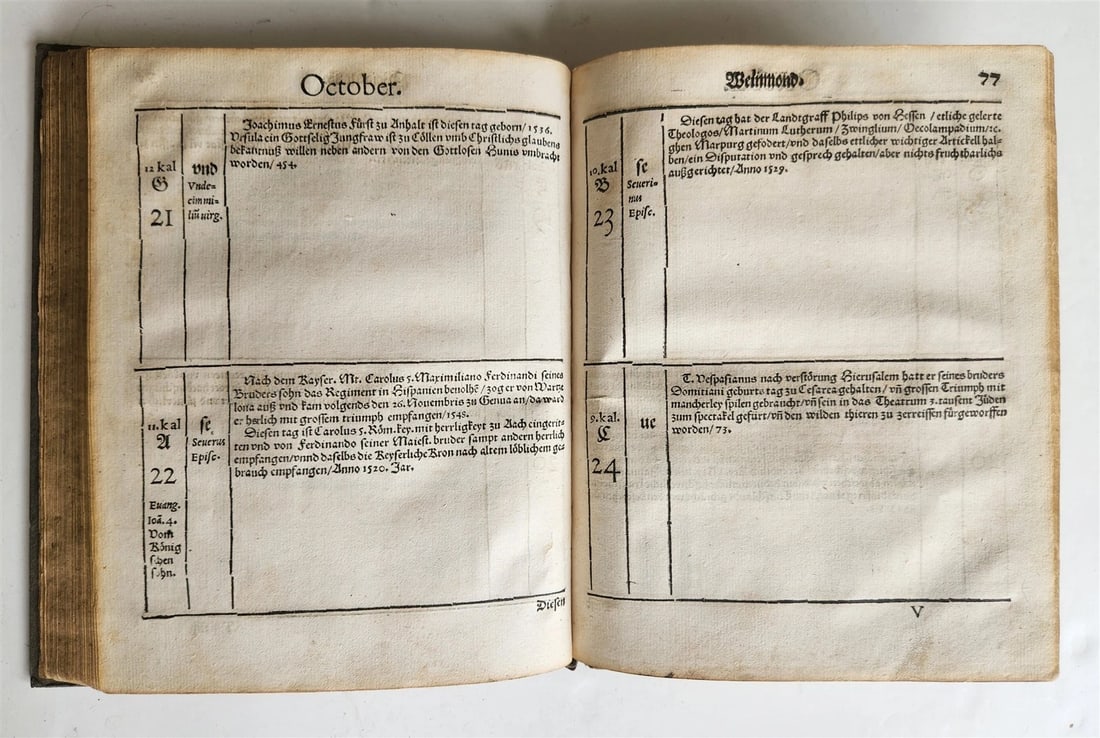 October.
12 kal
G
21
vnd
Vnde=
cim mi=
liū uirg.
Joachimus Ernestus Fürst zu Anhalt ist diesen tag geborn/1536.
Vrsula ein Gottselig Jungfraw ist zu Cöllen vmb Christlichs glaubens
bekantnuß willen neben andern von den Gottlosen Hunis vmbracht
worden/454.
11.kal
A
22
Euang.
Ioā.4.
Vom
König
schen
sohn.
se
Seuerus
Episc.
Nach dem Kayser. Mt. Carolus 5. Maximiliano Ferdinandi seines
Bruders sohn das Regiment in Hispanien beuolhē/zog er von Bartze
lona auß vnd kam volgends den 26. Nouembris zu Genua an/da ward
er herlich mit grossem triumph empfangen/1548.
Diesen tag ist Carolus 5. Röm. key. mit herrligkeyt zu Aach eingerit=
ten vnd von Ferdinando seiner Maiest. bruder sampt andern herrlich
empfangen/vnnd daselbs die Keyserliche Kron nach altem löblichem ge=
brauch empfangen/Anno 1520. Jar.
Diesen
Weinmond.
77
10.kal
B
23
se
Seueri=
nus
Episc.
Diesen tag hat der Landtgraff Philips von Hessen/etliche gelerte
Theologos/Martinum Lutherum/Zwinglium/Oecolampadium/ꝛc.
ghen Marpurg gefodert/vnd daselbs ettlicher wichtiger Artickell hal=
ben/ein Disputation vnd gesprech gehalten/aber nichts fruchtbarlichs
außgerichtet/Anno 1529.
9.kal.
C
24
ue
T. Vespasianus nach verstörung Hierusalem hatt er seines bruders
Domitiani geburts tag zu Cesarea gehalten/vñ grossen Triumph mit
mancherley spilen gebraucht/vñ sein in das Theatrum 3. tausent Jüden
zum spectakel gefürt/vñ den wilden thieren zu zerreissen fürgeworffen
worden/73.
V